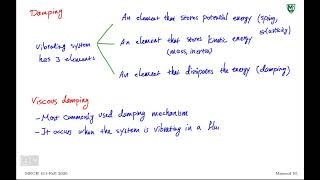 Damping
An element that stores potential energy (spring, elasticity)
vibrating system
has 3 elements
An element that stores kinetic energy
(mass, inertia)
An element that dissipates the energy (damping)
Viscous damping
- Most commonly used damping mechanism
- It occurs when the system is vibrating in a flui
Fall 2020